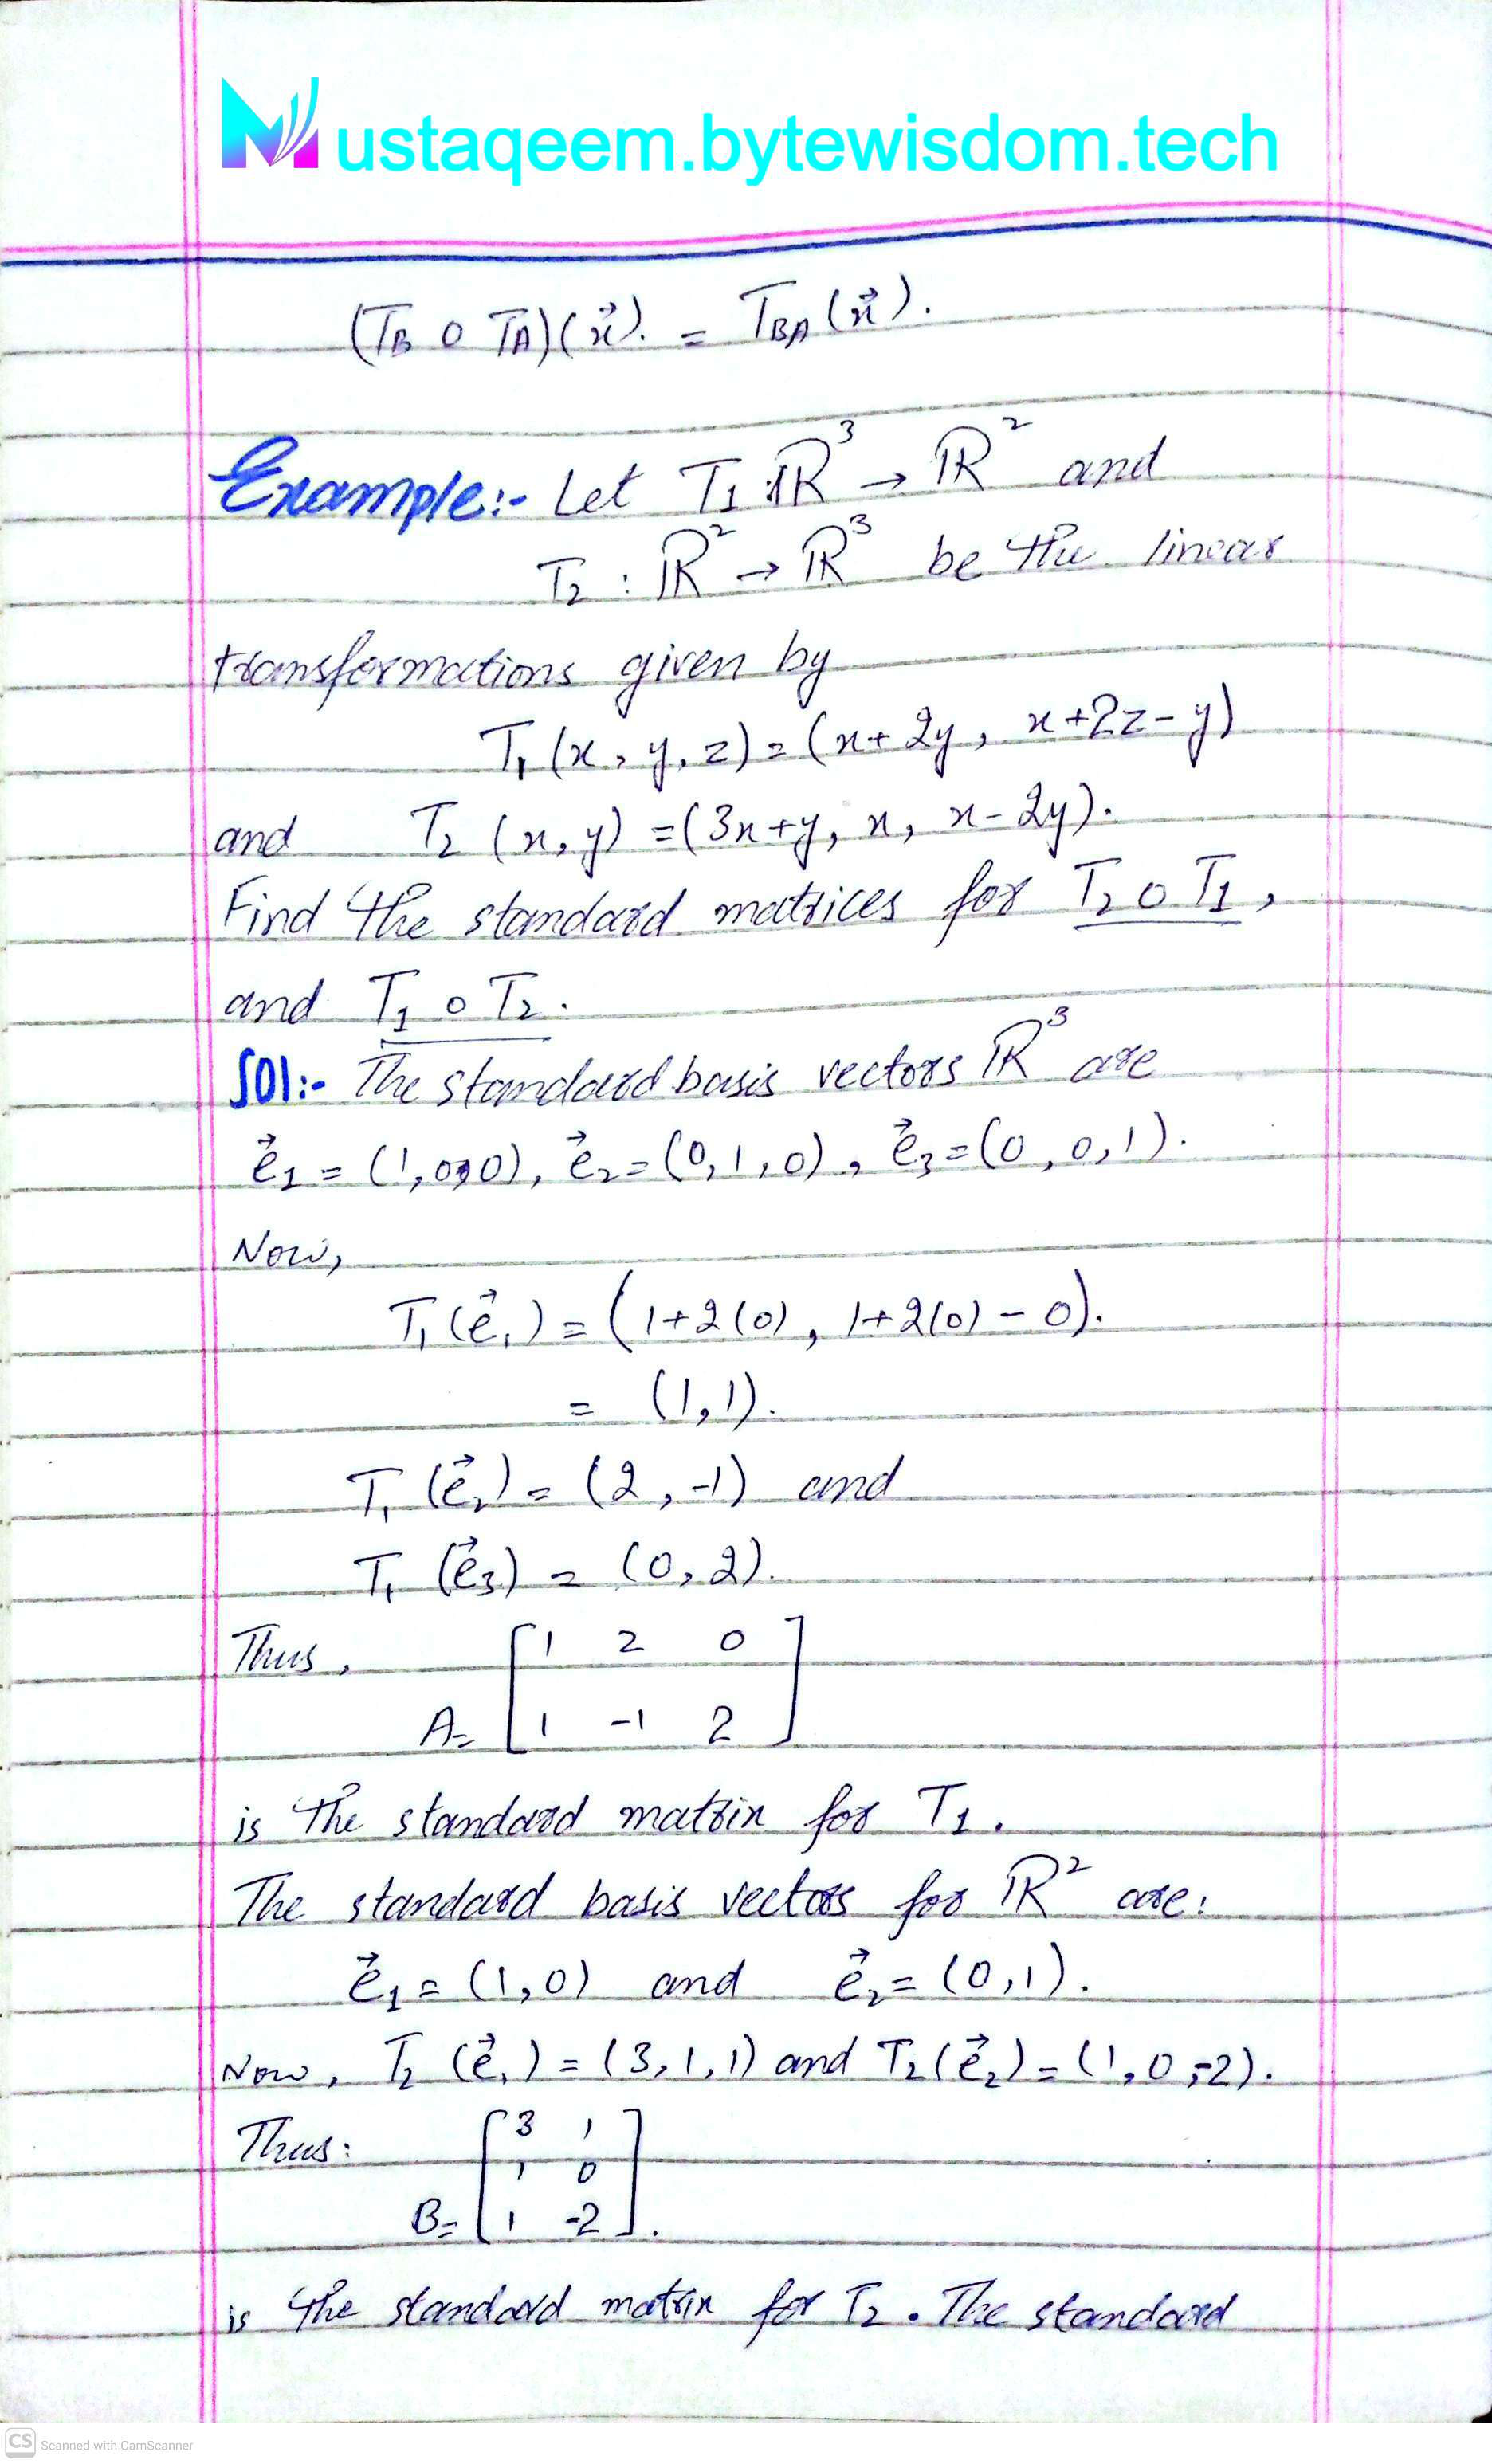 Mustaqeem.bytewisdom.tech
(T_B o T_A)(x⃗). = T_BA(x⃗).
Example:- Let T₁:ℝ³ → ℝ² and
T₂ : ℝ² → ℝ³ be the linear
transformations given by
T₁(x, y, z) = (x+2y, x+2z-y)
and T₂(x, y) = (3x+y, x, x-2y).
Find the standard matrices for T₂ o T₁,
and T₁ o T₂.
Sol:- The standard basis vectors ℝ³ are
e⃗₁ = (1,0,0), e⃗₂ = (0,1,0), e⃗₃ = (0,0,1).
Now,
T₁(e⃗₁) = (1+2(0), 1+2(0)-0).
= (1,1).
T₁(e⃗₂) = (2,-1) and
T₁(e⃗₃) = (0,2).
Thus,
1 2 0
A= 1 -1 2
is the standard matrix for T₁.
The standard basis vectors for ℝ² are:
e⃗₁ = (1,0) and e⃗₂ = (0,1).
Now, T₂(e⃗₁) = (3,1,1) and T₂(e⃗₂) = (1,0,-2).
Thus:
3 1
1 0
B= 1 -2.
is the standard matrix for T₂. The standard
CS Scanned with CamScanner